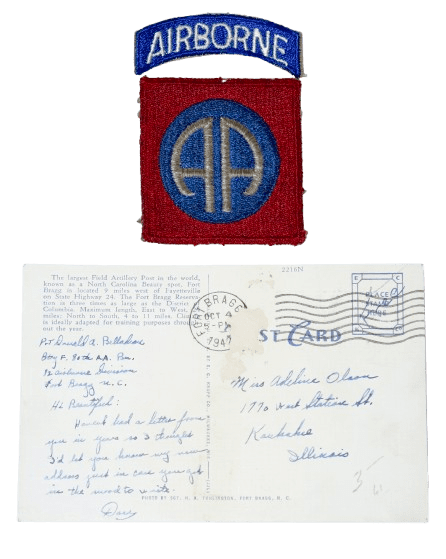 AIRBORNE
AA
The largest Field Artillery Post in the world,
known as a North Carolina Beauty spot, Fort
Bragg is located 9 miles west of Fayetteville
on State Highway 24. The Fort Bragg Reserva-
tion is three times as large as the District of
Columbia. Maximum length, East to West,
miles; North to South, 4 to 11 miles.
is ideally adapted for training purposes
out the year.
2216N
FORT BRAGG
OCT 4
5-PM
1947
PLACE
STAMP
HERE
ST CARD
Pvt Donald A.
Btry F. 80th AA. Bn.
Airborne Division
Fort Bragg N.C.
Hi Beautiful:
Haven't had a letter from
you in years so I thought
I'd let you know my new
address just in case you get
in the mood to write.
Miss Adeline Olson
1770 West Station St.
Kankakee
Illinois
FORT BRAGG, N. C.